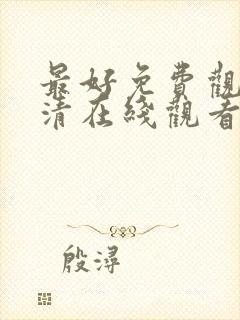 最好免費觀
清在綫觀看
殷潯